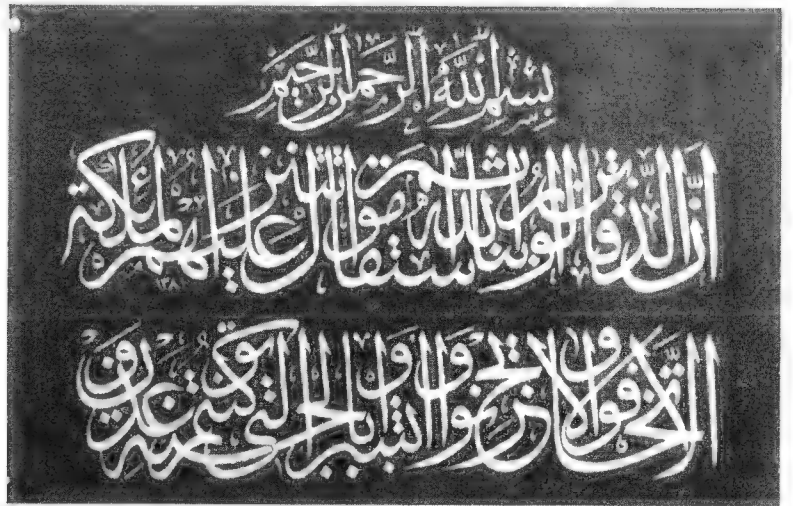 بسم الله الرحمن الرحيم
إن الذين قالوا ربنا الله ثم استقاموا تتنزل عليهم الملائكة
ألا تخافوا ولا تحزنوا وابشروا بالجنة التي كنتم توعدون